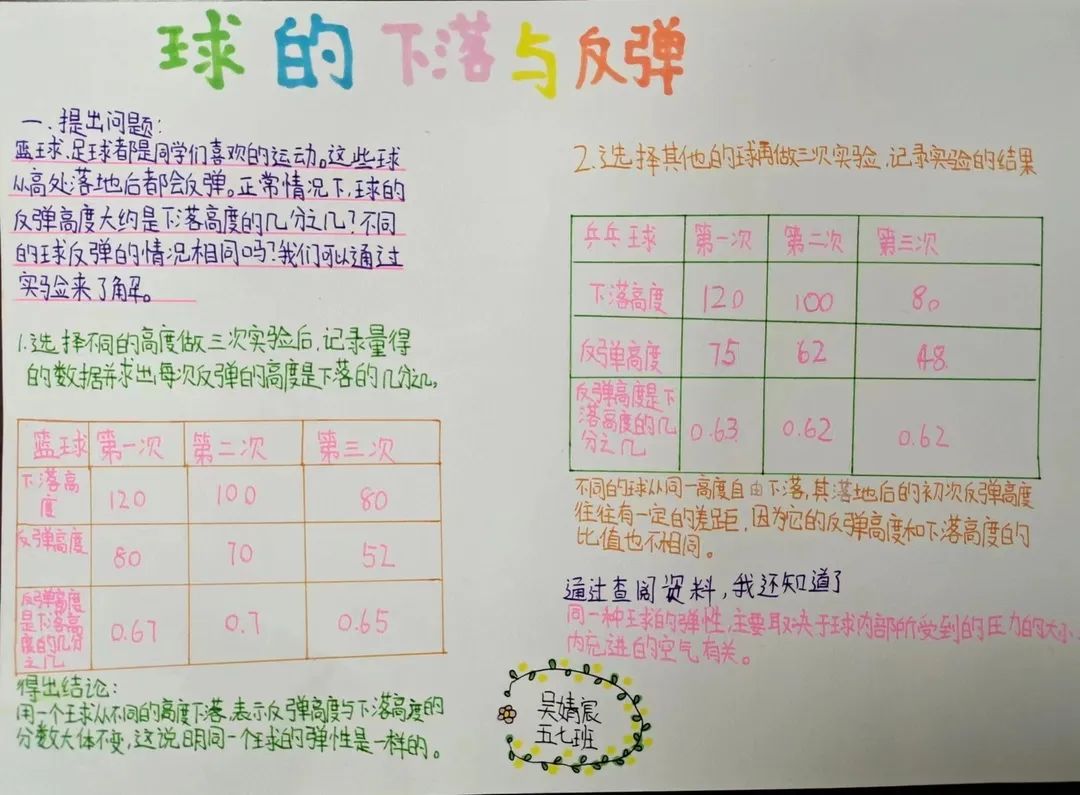 球的下落与反弹
一.提出问题:
蓝球、足球都是同学们喜欢的运动。这些球
从高处落地后都会反弹。正常情况下,球的
反弹高度大约是下落高度的几分之几?不同
的球反弹的情况相同吗?我们可以通过
实验来了解。
1.选择不同的高度做三次实验后,记录量得
的数据并求出每次反弹的高度是下落的几分之几。
蓝球 第一次 第二次 第三次
下落高
度 120 100 80
反弹高度 80 70 52
反弹高度
是下落高
度的几分
之几 0.67 0.7 0.65
得出结论:
用一个球从不同的高度下落,表示反弹高度与下落高度的
分数大体不变,这说明同一个球的弹性是一样的。
2.选择其他的球再做三次实验,记录实验的结果
乒乓球 第一次 第二次 第三次
下落高度 120 100 80
反弹高度 75 62 48.
反弹高度是下
落高度的几
分之几 0.63 0.62 0.62
不同的球从同一高度自由下落,其落地后的初次反弹高度
往往有一定的差距,因为它的反弹高度和下落高度的
比值也不相同。
通过查阅资料,我还知道了
同一种球的弹性,主要取决于球内部所受到的压力的大小、
内充进的空气有关。
吴婧宸
五七班